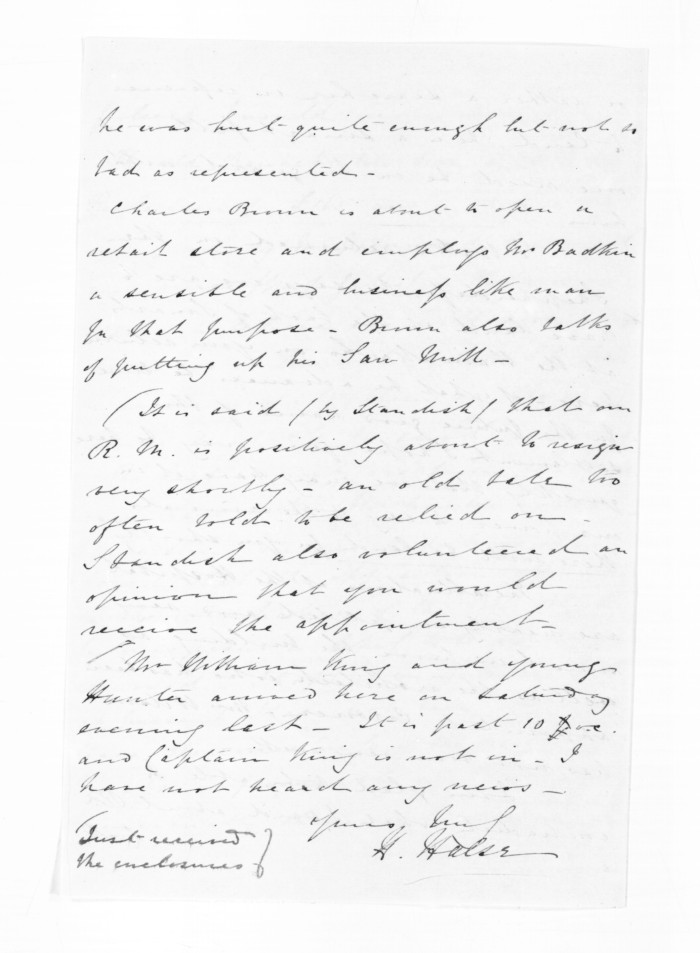 he was hurt quite enough but not so
bad as represented -
Charles Brown is about to open a
retail store and employs Mr Badkin
a sensible and business like man
for that purpose - Brown also talks
of putting up his Saw Mill -
(It is said (by Standish) that our
R. M. is positively about to resign
very shortly - an old tale too
often told to be relied on -
Standish also volunteered an
opinion that you would
receive the appointment -
Mr William King and young
Hunter arrived here on Saturday
evening last - It is past 10
and Captain King is not in - I
have not heard any news -
Yours truly
H. Halse
(Just received
the enclosures)